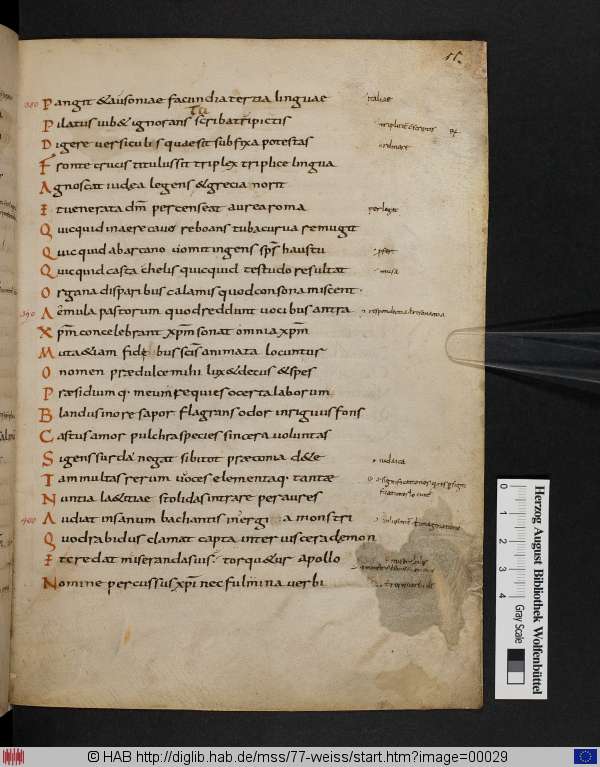 380 Pangit & ausoniae facundia tertia linguae italiae
Pilatus iub& ignorans scriba tripictis
Digere versiculis quae sit subfixa potestas
Fronte crucis titulus sit triplex triplice lingua
Agnoscat iudea legens & grecia norit
Et venerata dm̄ percenseat aurea roma perlegit
Quicquid in aere cavo reboans tuba curva remugit
Quicquid ab arcano vomit ingens sps̄ haustu
Quicquid casta chelis quicquid testudo resultat musa
Organa disparibus calamis quod consona miscent
390 Aemula pastorum quod reddunt vocibus antra
Xpm̄ concelebrant xpm̄ sonat omnia xpm̄
Muta &iam fidibus scīs animata locuntur
O nomen praedulce mihi lux & decus & spes
Praesidiumq. meum requies o certa laborum
Blandus in ore sapor flagrans odor inriguus fons
Castus amor pulchra species sincera voluntas
Si gens surda negat sibi tot praeconia de te iudaica
Tam multas rerum voces elementaq. tantae
Nuntia la&itiae stolidas intrare per aures
400 Audiat insanum bachantis monstri
Quod rabidus clamat capta inter viscera demon
torqu&ur apollo
Nomine percussus xpī nec fulmina verbi
0
1
2
3
4
Herzog August Bibliothek Wolfenbüttel
Gray Scale
© HAB http://diglib.hab.de/mss/77-weiss/start.htm?image=00029